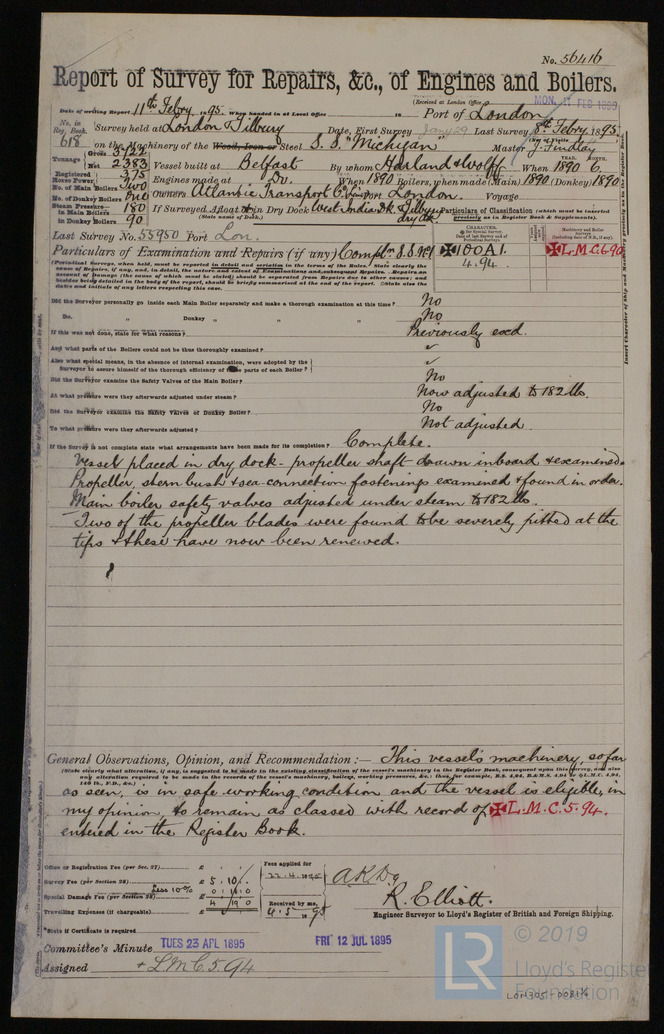 No. 56416
Report of Survey for Repairs, &c., of Engines and Boilers.
(Received at London Office MON. FEB 1895
Date of writing Report 11th Febry 1895. When handed in at Local Office 18 Port of London
No. in Reg. Book. 618 Survey held at London & Tilbury Date, First Survey Jany 29 Last Survey 8th Febry 1895.
on the Machinery of the Wood, Iron or Steel S.S. "Michigan" Master J. Findlay
Tonnage Gross 3722 Net 2383 Vessel built at Belfast By whom Harland & Wolff When 1890 6.
Registered Horse Power 375 Engines made at Do. When 1890 Boilers, when made (Main) 1890 (Donkey) 1890
No. of Main Boilers Two
No. of Donkey Boilers One Owners Atlantic Transport Co. Port London. Voyage
Steam Pressure in Main Boilers 180 If Surveyed Afloat & in Dry Dock West India Dk & Tilbury dry dk.
in Donkey Boilers 90 (State name of Dock.)
Particulars of Classification (which must be inserted precisely as in Register Book & Supplements).
Last Survey No. 55950 Port Lon.
Particulars of Examination and Repairs (if any) Compln S.S. No 1
✠ 100A1. 4.94
✠ L.M.C. 6.90
Did the Surveyor personally go inside each Main Boiler separately and make a thorough examination at this time? No
Do. " Donkey " " " No
If this was not done, state for what reasons? Previously exd.
And what parts of the Boilers could not be thus thoroughly examined? ✓
Also what special means, in the absence of internal examination, were adopted by the Surveyor to assure himself of the thorough efficiency of the parts of each Boiler? ✓
Did the Surveyor examine the Safety Valves of the Main Boiler? No
At what pressure were they afterwards adjusted under steam? Now adjusted to 182 lbs.
Did the Surveyor examine the Safety Valves of Donkey Boiler? No
To what pressure were they afterwards adjusted? Not adjusted
If the Survey is not complete state what arrangements have been made for its completion? Complete.
Vessel placed in dry dock - propeller shaft drawn inboard & examined.
Propeller, stern bush & sea-connection fastenings examined & found in order.
Main boiler safety valves adjusted under steam to 182 lbs.
Two of the propeller blades were found to be severely pitted at the
tips & these have now been renewed.
General Observations, Opinion, and Recommendation :— This vessel's machinery, so far
(State clearly what alteration, if any, is suggested to be made in the existing classification of the vessel's machinery in the Register Book, consequent upon this Survey, and also any alteration required to be made in the records of the vessel's machinery, boilers, working pressures, &c.
as seen, is in safe working condition and the vessel is eligible, in
my opinion, to remain as classed with record of ✠ L.M.C. 5.94.
entered in the Register Book.
Office or Registration Fee (per Sec. 27) £
Survey Fee (per Section 28) £ 5 . 10/-
less 10% 0 11 0
Special Damage Fee (per Section 28) £ 4 19 0
Travelling Expenses (if chargeable) £
Fees applied for 22.4.1895
Received by me, 4.5.1895
R. Elliott.
Engineer Surveyor to Lloyd's Register of British and Foreign Shipping.
*State if Certificate is required
Committee's Minute TUES 23 APL 1895 FRI 12 JUL 1895
Assigned + LMC 5.94
LR © 2019
Lloyd's Register
Foundation